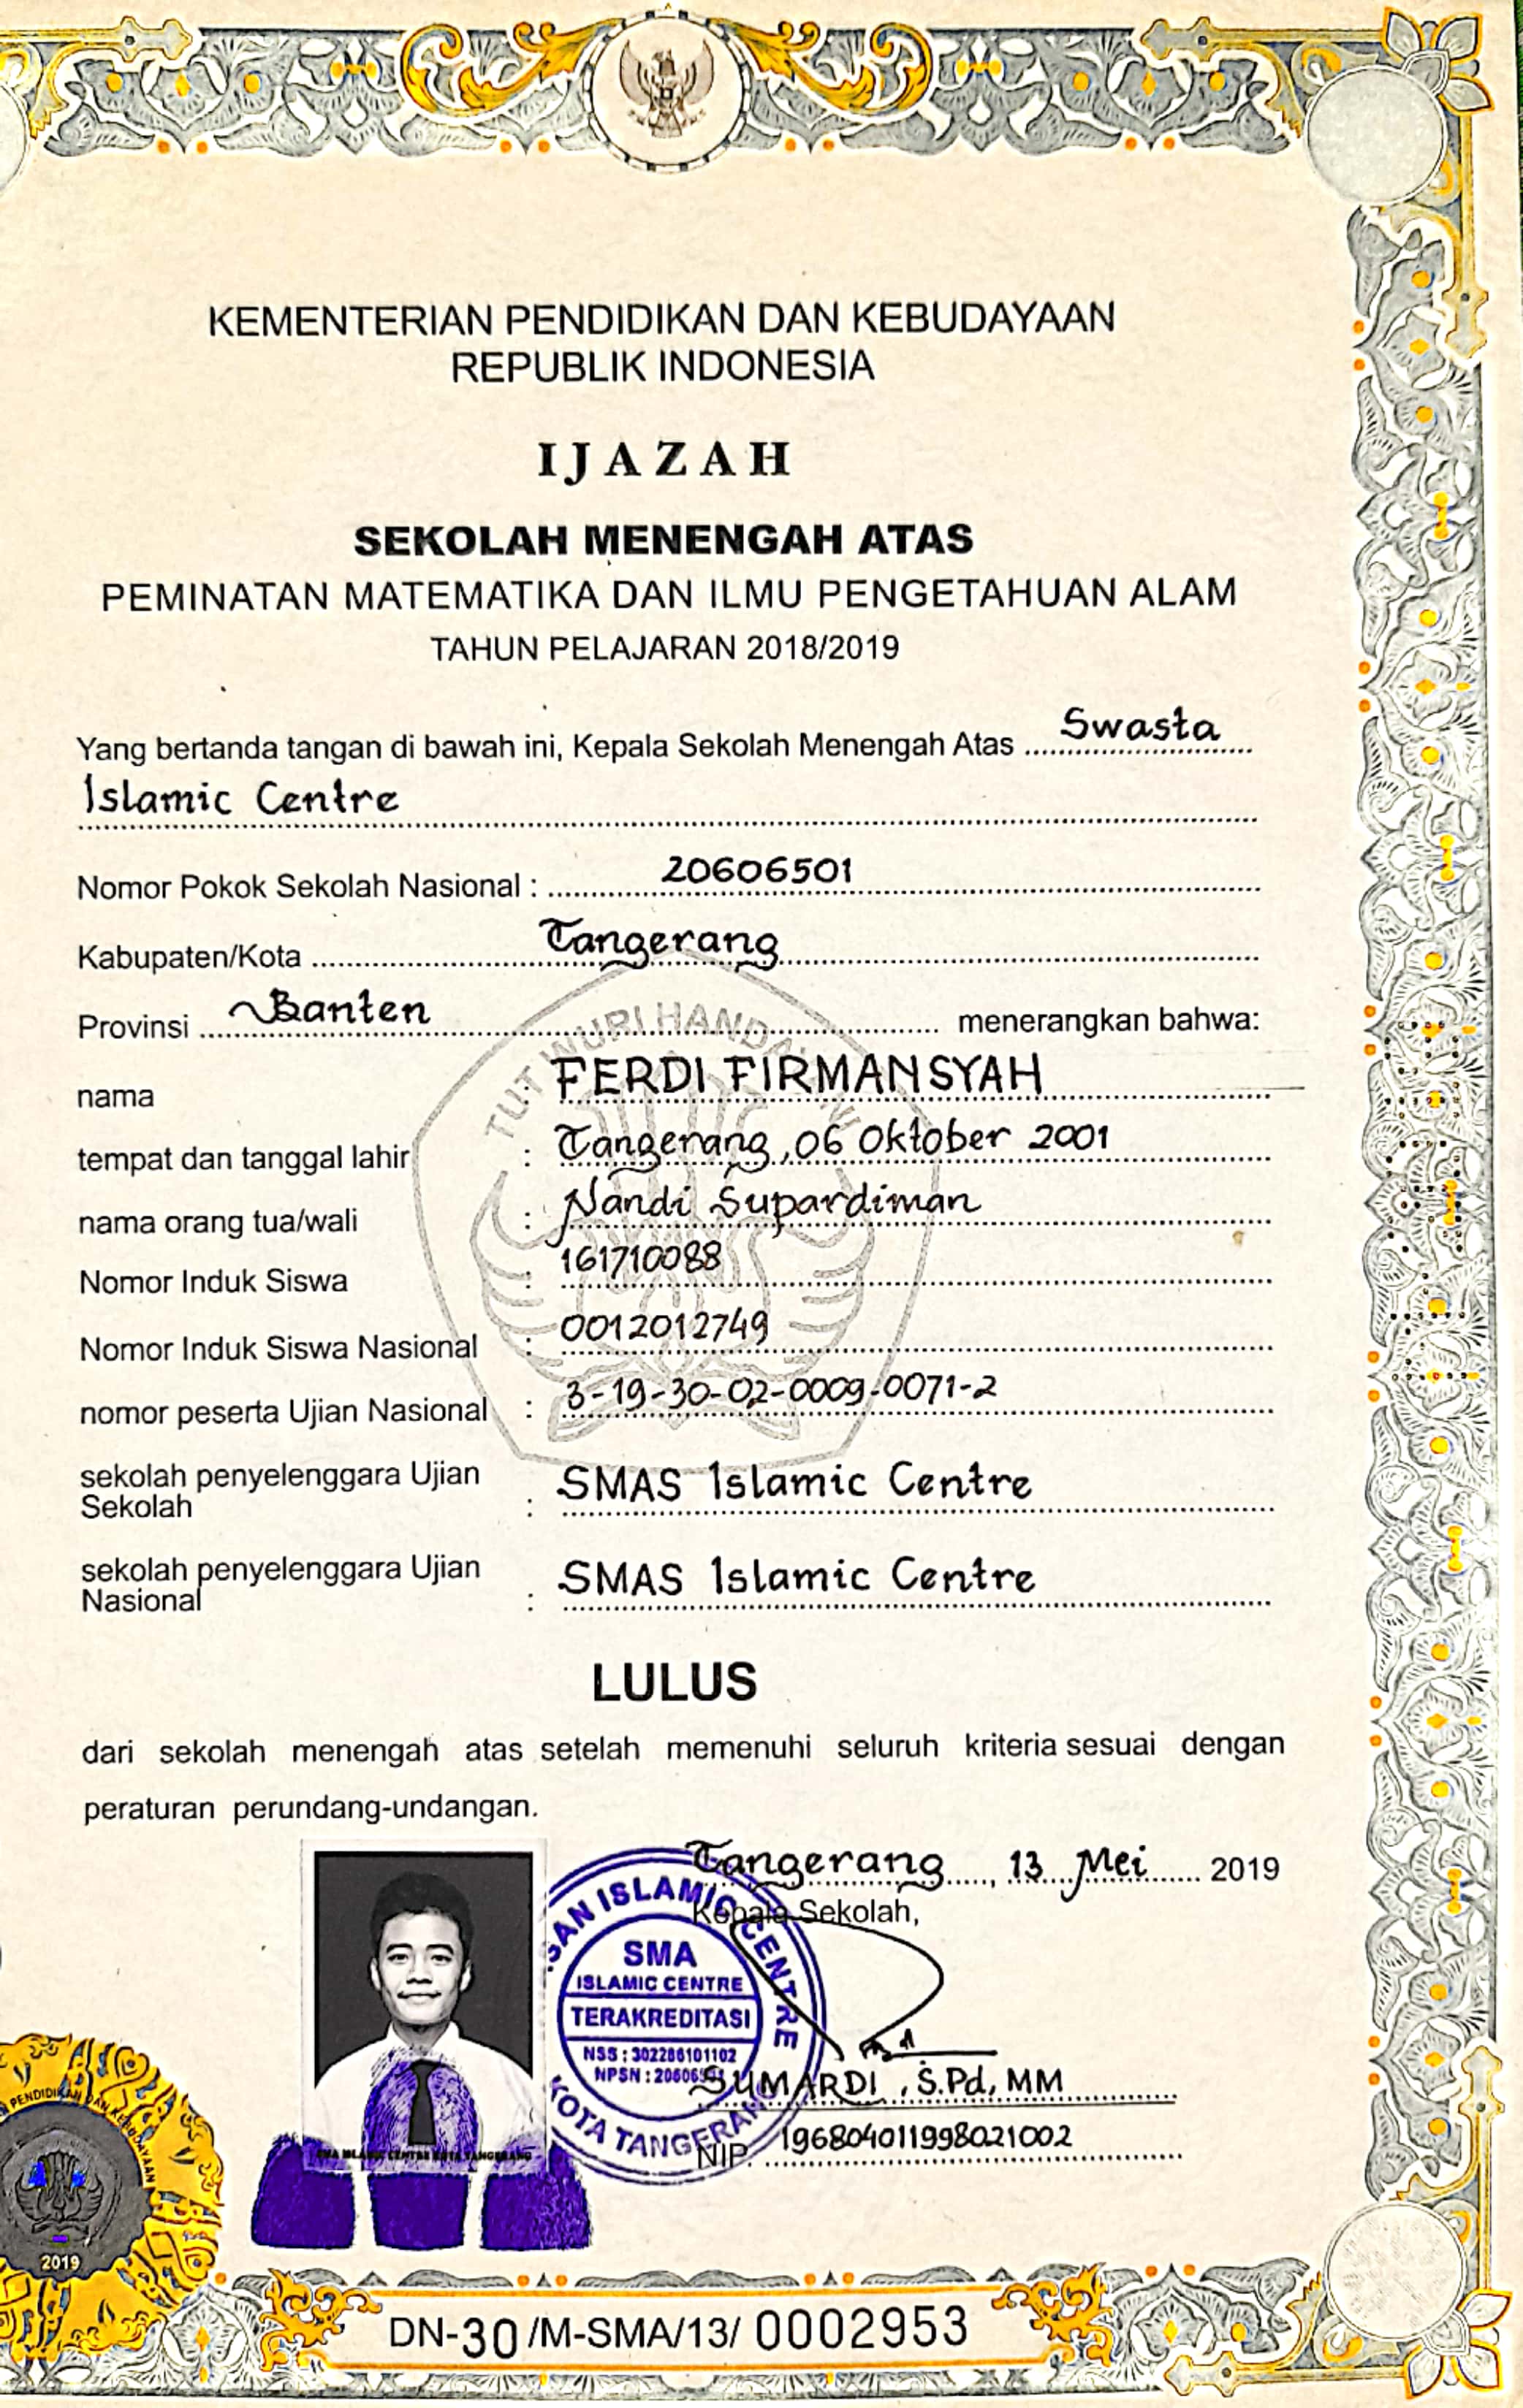 KEMENTERIAN PENDIDIKAN DAN KEBUDAYAAN
REPUBLIK INDONESIA
IJAZAH
SEKOLAH MENENGAH ATAS
PEMINATAN MATEMATIKA DAN ILMU PENGETAHUAN ALAM
TAHUN PELAJARAN 2018/2019
Yang bertanda tangan di bawah ini, Kepala Sekolah Menengah Atas Swasta
Islamic Centre
Nomor Pokok Sekolah Nasional : 20606501
Kabupaten/Kota Tangerang
Provinsi Banten menerangkan bahwa:
TUT WURI HANDAYANI
nama : FERDI FIRMANSYAH
tempat dan tanggal lahir : Tangerang, 06 Oktober 2001
nama orang tua/wali : Nandi Supardiman
Nomor Induk Siswa : 161710088
Nomor Induk Siswa Nasional : 0012012749
nomor peserta Ujian Nasional : 3-19-30-02-0009-0071-2
sekolah penyelenggara Ujian
Sekolah : SMAS Islamic Centre
sekolah penyelenggara Ujian
Nasional : SMAS Islamic Centre
LULUS
dari sekolah menengah atas setelah memenuhi seluruh kriteria sesuai dengan
peraturan perundang-undangan.
Tangerang, 13 Mei 2019
Kepala Sekolah,
ISLAMIC CENTRE
SMA
ISLAMIC CENTRE
TERAKREDITASI
NSS : 302286101102
NPSN : 206065
KOTA TANGERANG
SUMARDI, S.Pd, MM
NIP. 196804011998021002
SMA ISLAMIC CENTRE KOTA TANGERANG
PENDIDIKAN DAN KEBUDAYAAN
2019
DN-30 /M-SMA/13/ 0002953